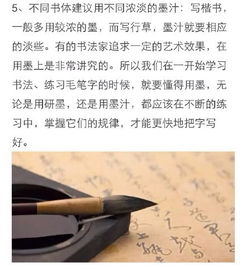 5、不同书体建议用不同浓淡的墨汁：写楷书，
一般多用较浓的墨，而写行草，墨汁就要相应
的淡些。有的书法家追求一定的艺术效果，在
用墨上是非常讲究的。所以我们在一开始学习
书法、练习毛笔字的时候，就要懂得用墨，无
论是用研墨，还是用墨汁，都应该在不断的练
习中，掌握它们的规律，才能更快地把字写
好。